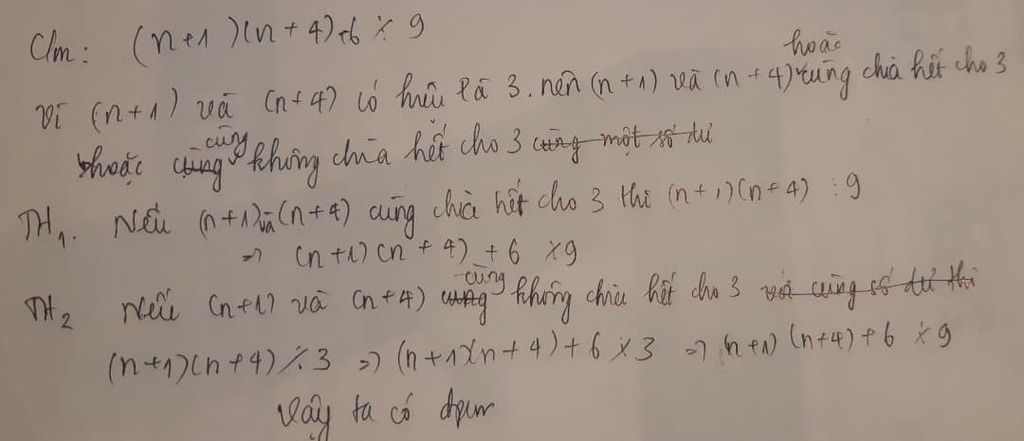 C/m: (n+1)(n+4)+6 ⋮̸ 9
Vì (n+1) và (n+4) có hiệu là 3. nên (n+1) và (n+4) hoặc cùng chia hết cho 3
hoặc cùng không chia hết cho 3 cùng một số dư
TH1. Nếu (n+1) và (n+4) cùng chia hết cho 3 thì (n+1)(n+4) ⋮ 9
=> (n+1)(n+4) + 6 ⋮̸ 9
TH2 Nếu (n+1) và (n+4) cùng không chia hết cho 3 với cùng số dư thì
(n+1)(n+4) ⋮̸ 3 => (n+1)(n+4)+6 ⋮̸ 3 => (n+1)(n+4)+6 ⋮̸ 9
Vậy ta có đpcm